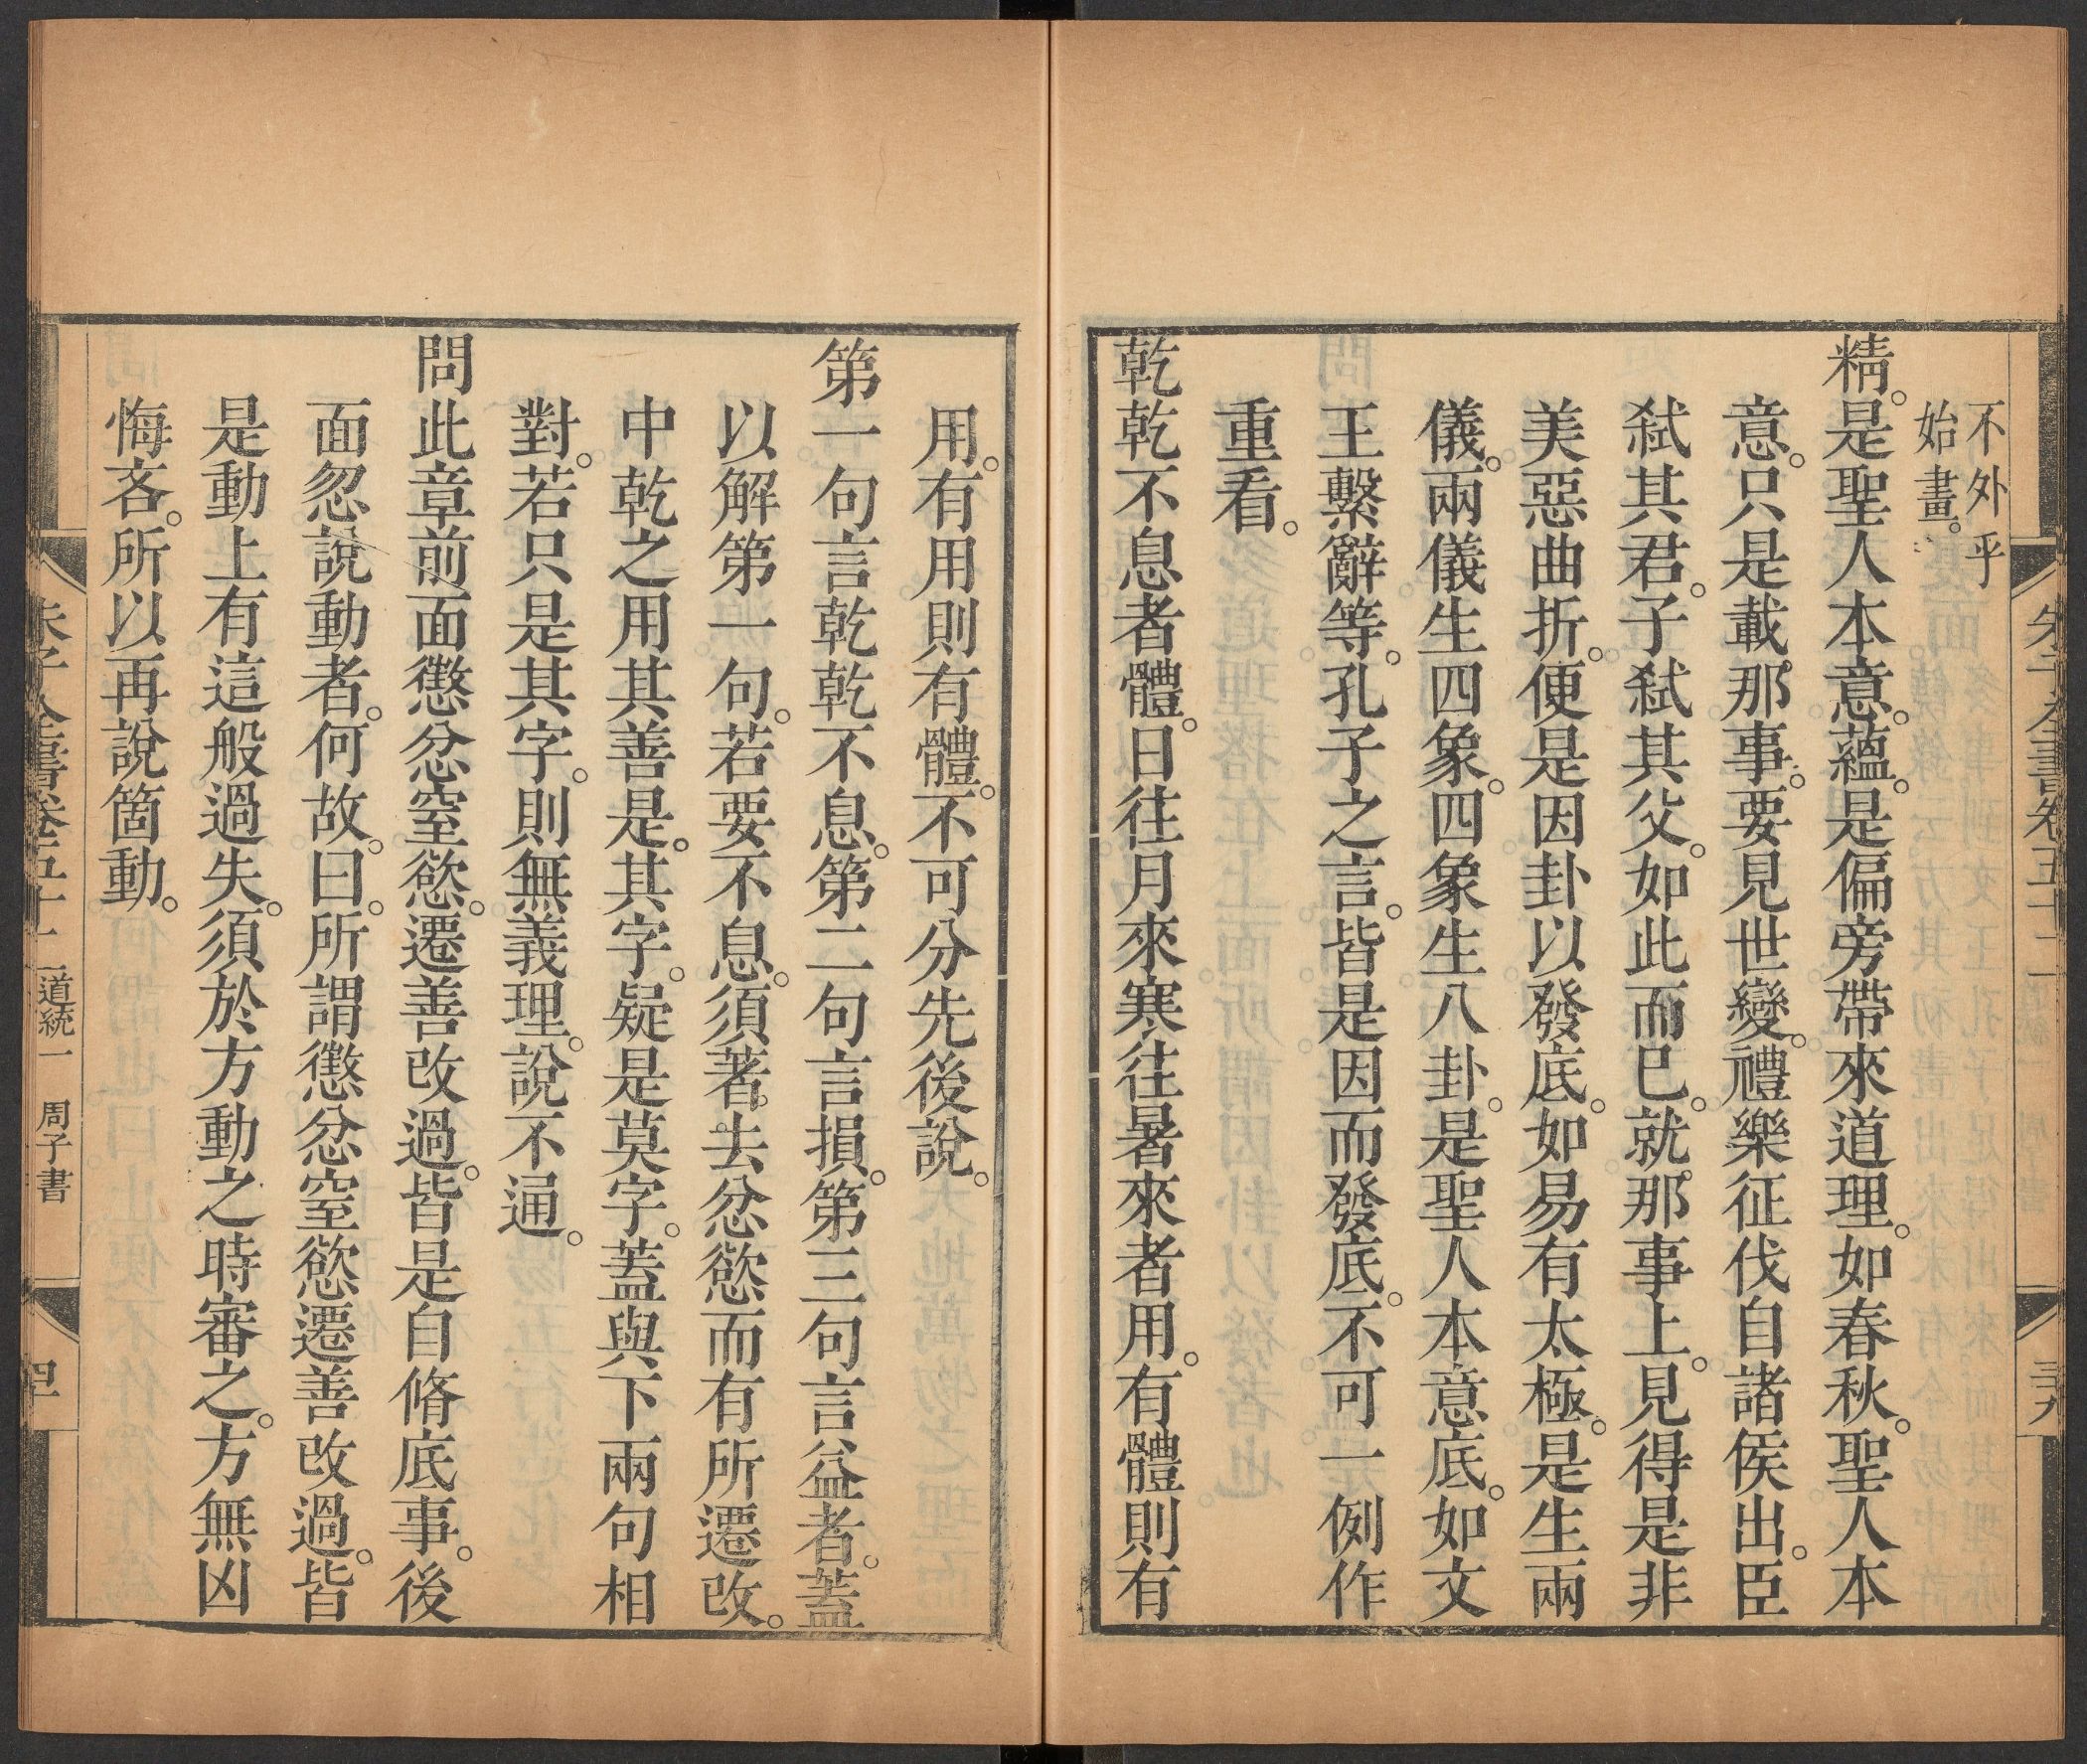 不外乎
始畫。
精。是聖人本意。蘊。是偏旁帶來道理。如春秋。聖人本
意。只是載那事。要見世變。禮樂征伐自諸侯出。臣
弑其君。子弑其父。如此而已。就那事上。見得是非
美惡曲折。便是因卦以發底。如易有太極。是生兩
儀。兩儀生四象。四象生八卦。是聖人本意底。如文
王繫辭等。孔子之言。皆是因而發底。不可一例作
重看。
乾乾不息者體。日往月來寒往暑來者用。有體則有
用。有用則有體。不可分先後說。
第一句言乾乾不息。第二句言損。第三句言益者。蓋
以解第一句。若要不息。須著去忿慾而有所遷改。
中乾之用其善是。其字。疑是莫字。蓋與下兩句相
對。若只是其字。則無義理。說不通。
問此章前面懲忿窒慾。遷善改過。皆是自脩底事。後
面忽說動者。何故。曰。所謂懲忿窒慾遷善改過。皆
是動上有這般過失。須於方動之時審之。方無凶
悔吝。所以再說箇動。
朱子全書卷五十二 道統一 周子書